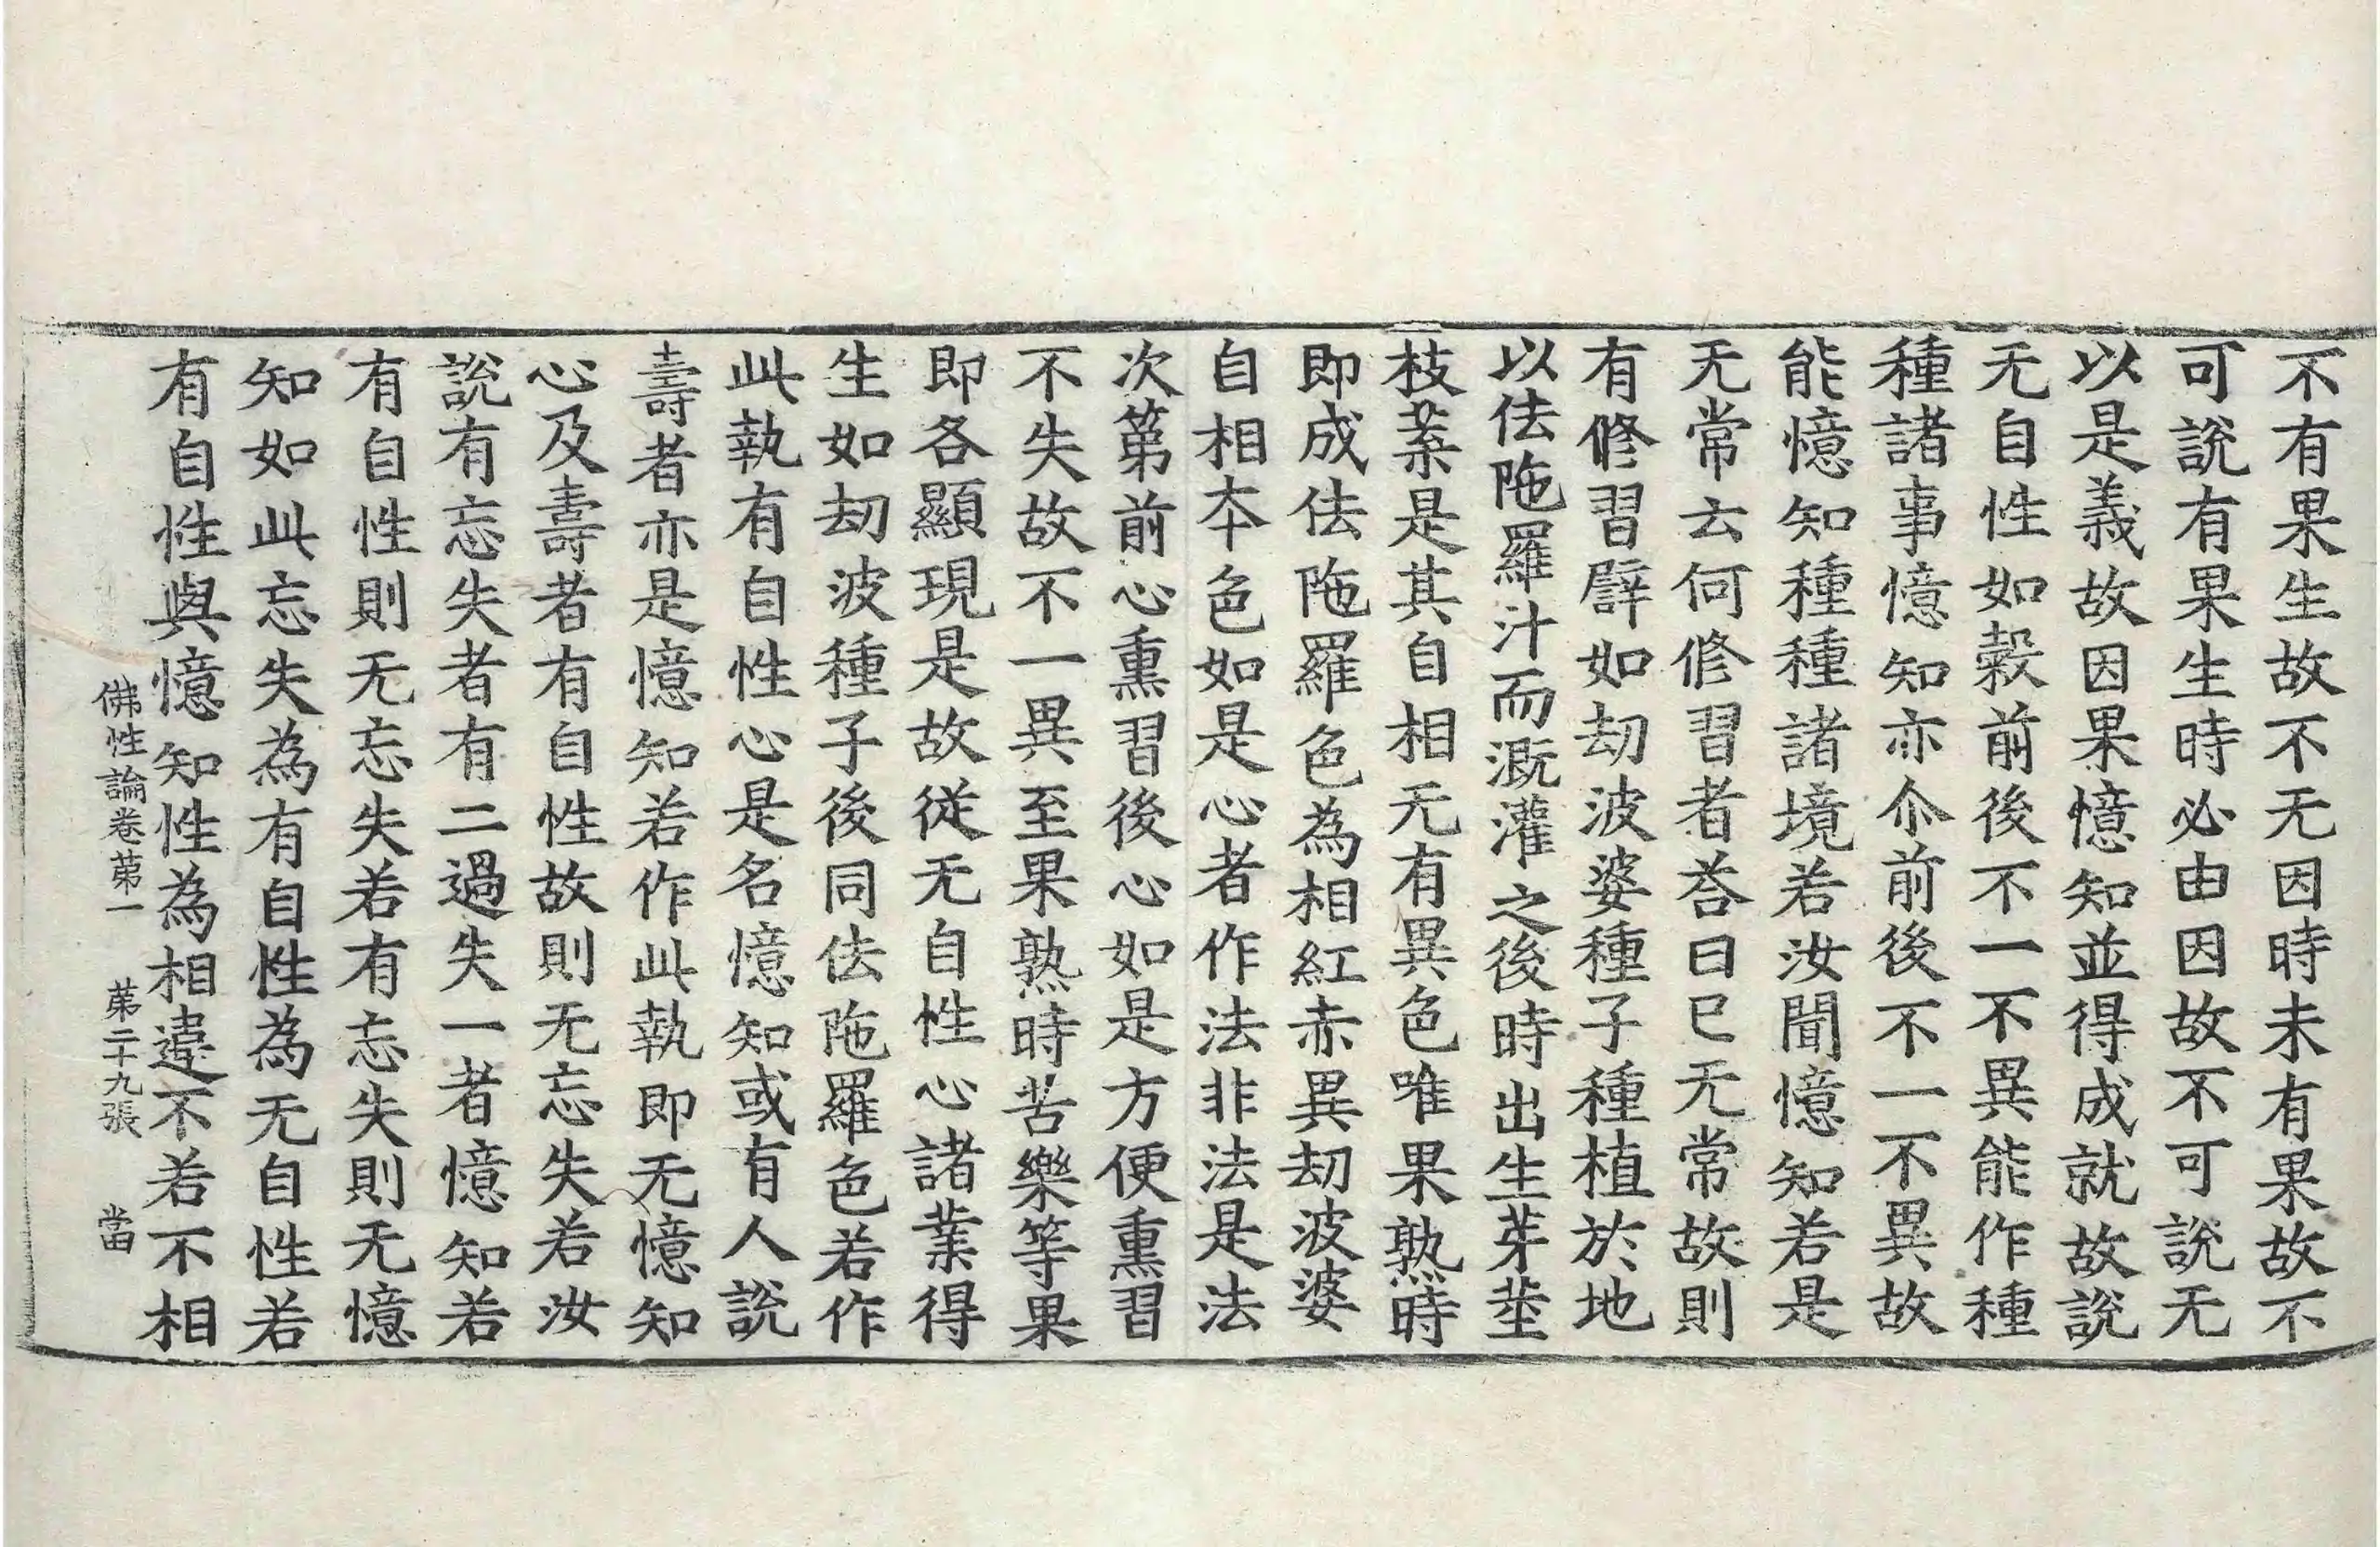 不有果生故不无因時未有果故不
可說有果生時必由因故不可說无
以是義故因果憶知並得成就故說
无自性如穀前後不一不異能作種
種諸事憶知亦尒前後不一不異故
能憶知種種諸境若汝聞憶知若是
无常云何修習者荅曰巳无常故則
有修習譬如劫波婆種子種植於地
以佉陁羅汁而溉灌之後時出生芽莖
枝葉是其自相无有異色唯果熟時
即成佉陁羅色為相紅赤異劫波婆
自相夲色如是心者作法非法是法
次第前心熏習後心如是方便熏習
不失故不一異至果熟時苦樂等果
即各顯現是故従无自性心諸業得
生如劫波種子後同佉陁羅色若作
此執有自性心是名憶知或有人說
壽者亦是憶知若作此執即无憶知
心及壽者有自性故則无忘失若汝
說有忘失者有二過失一者憶知若
有自性則无忘失若有忘失則无憶
知如此忘失為有自性為无自性若
有自性與憶知性為相違不若不相
佛性論卷苐一 苐二十九張 當